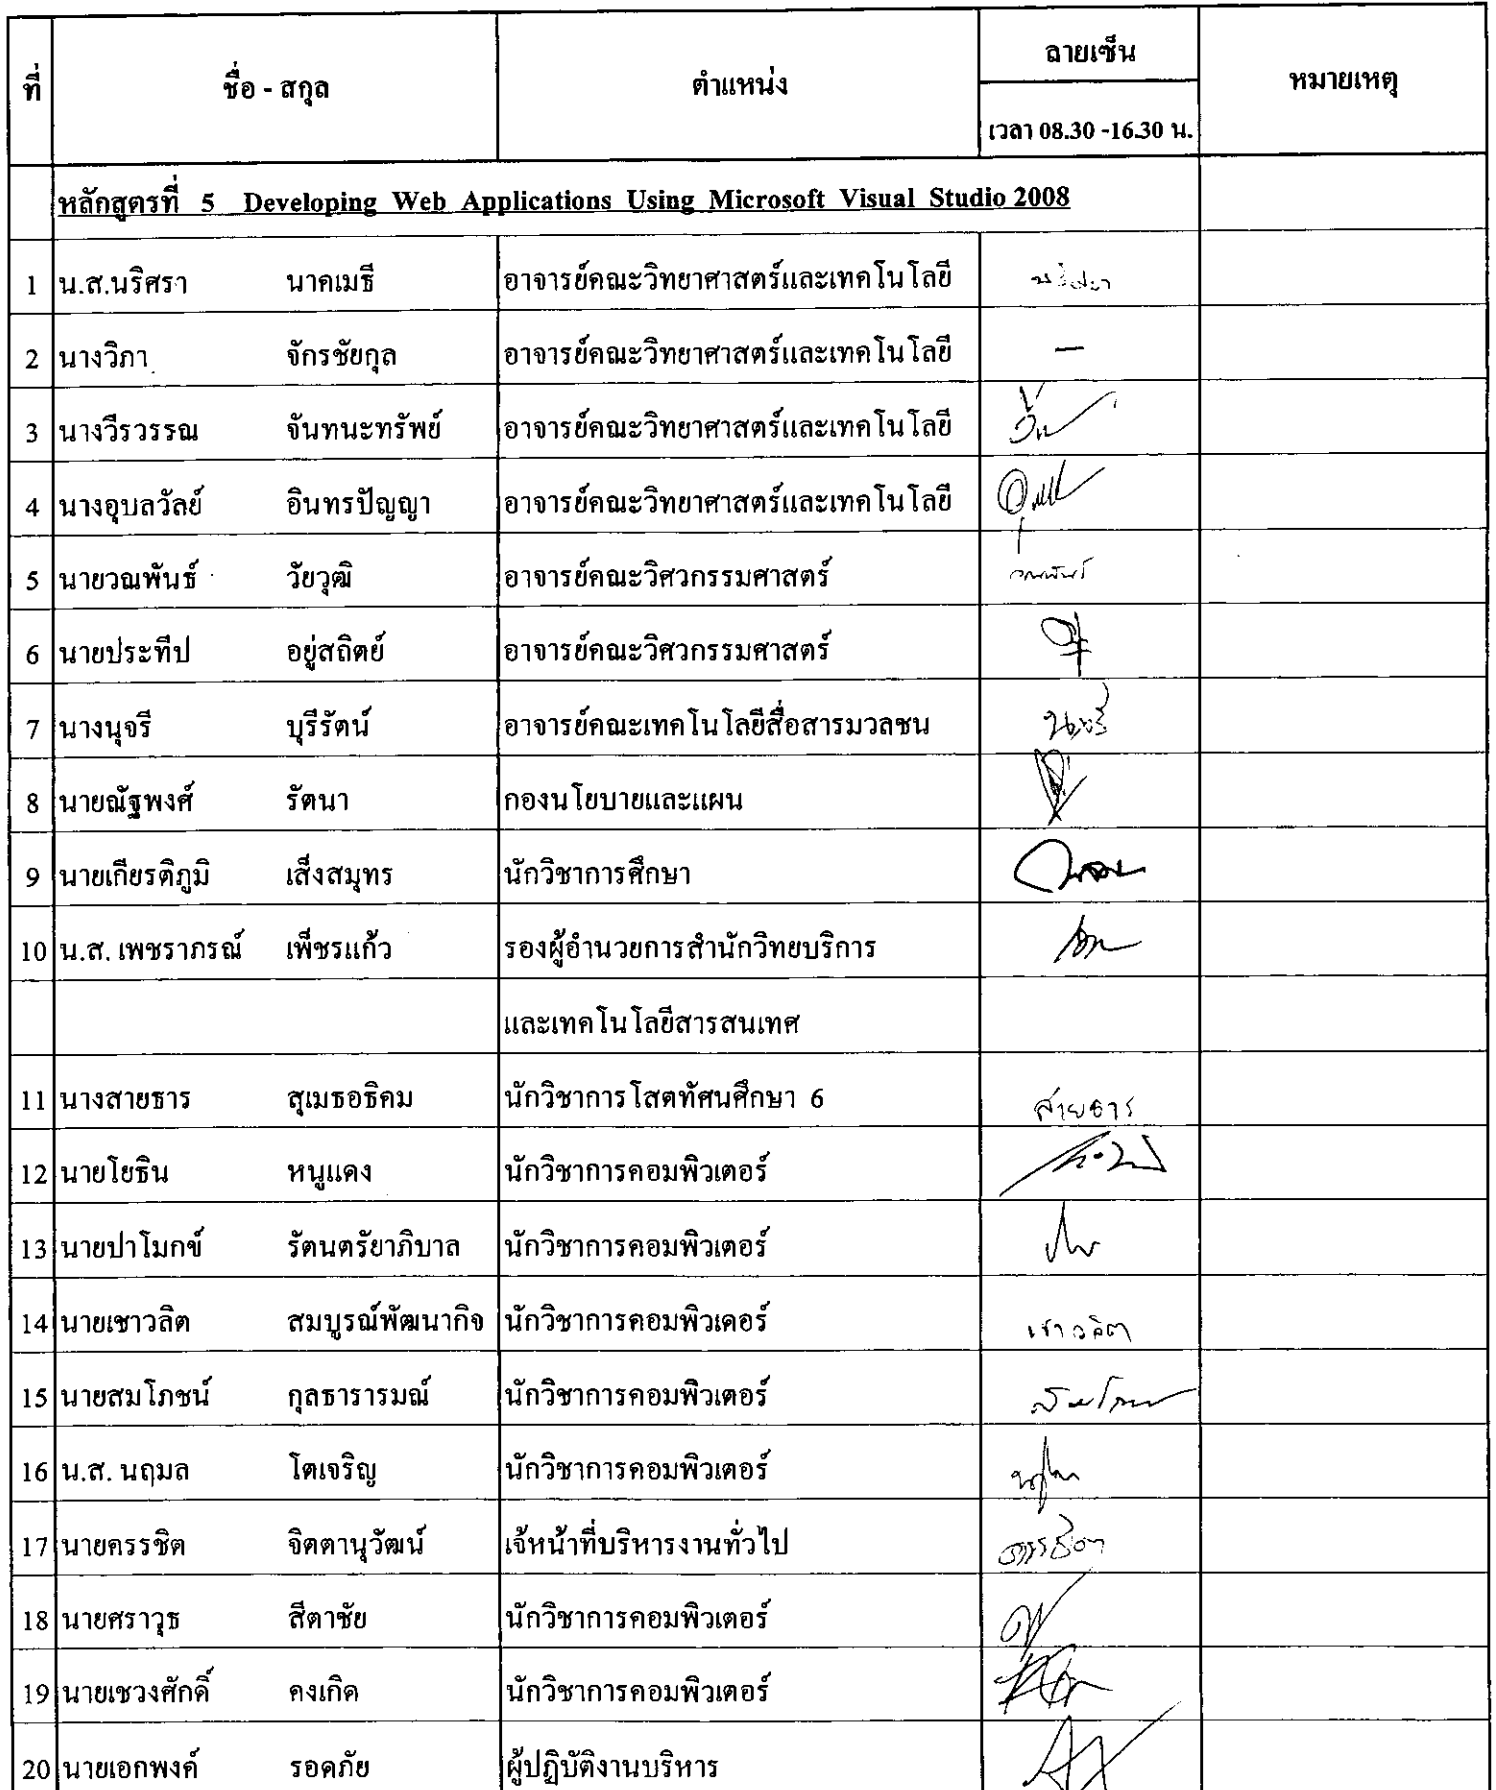 ที่ ชื่อ - สกุล ตำแหน่ง ลายเซ็น หมายเหตุ
เวลา 08.30 -16.30 น.
หลักสูตรที่ 5 Developing Web Applications Using Microsoft Visual Studio 2008
1 น.ส.นริศรา นาคเมธี อาจารย์คณะวิทยาศาสตร์และเทคโนโลยี นริศรา
2 นางวิภา จักรชัยกุล อาจารย์คณะวิทยาศาสตร์และเทคโนโลยี —
3 นางวีรวรรณ จันทนะทรัพย์ อาจารย์คณะวิทยาศาสตร์และเทคโนโลยี
4 นางอุบลวัลย์ อินทรปัญญา อาจารย์คณะวิทยาศาสตร์และเทคโนโลยี
5 นายวณพันธ์ วัยวุฒิ อาจารย์คณะวิศวกรรมศาสตร์ วณพันธ์
6 นายประทีป อยู่สถิตย์ อาจารย์คณะวิศวกรรมศาสตร์
7 นางนุจรี บุรีรัตน์ อาจารย์คณะเทคโนโลยีสื่อสารมวลชน นุจรี
8 นายณัฐพงศ์ รัตนา กองนโยบายและแผน
9 นายเกียรติภูมิ เส็งสมุทร นักวิชาการศึกษา
10 น.ส. เพชราภรณ์ เพ็ชรแก้ว รองผู้อำนวยการสำนักวิทยบริการ
และเทคโนโลยีสารสนเทศ
11 นางสายธาร สุเมธอธิคม นักวิชาการโสตทัศนศึกษา 6 สายธาร
12 นายโยธิน หนูแดง นักวิชาการคอมพิวเตอร์
13 นายปาโมกข์ รัตนตรัยาภิบาล นักวิชาการคอมพิวเตอร์
14 นายเชาวลิต สมบูรณ์พัฒนากิจ นักวิชาการคอมพิวเตอร์ เชาวลิต
15 นายสมโภชน์ กุลธารารมณ์ นักวิชาการคอมพิวเตอร์
16 น.ส. นฤมล โตเจริญ นักวิชาการคอมพิวเตอร์
17 นายครรชิต จิตตานุวัฒน์ เจ้หน้าที่บริหารงานทั่วไป ครรชิต
18 นายศราวุธ สีตาชัย นักวิชาการคอมพิวเตอร์
19 นายเชวงศักดิ์ คงเกิด นักวิชาการคอมพิวเตอร์
20 นายเอกพงค์ รอดภัย ผู้ปฏิบัติงานบริหาร